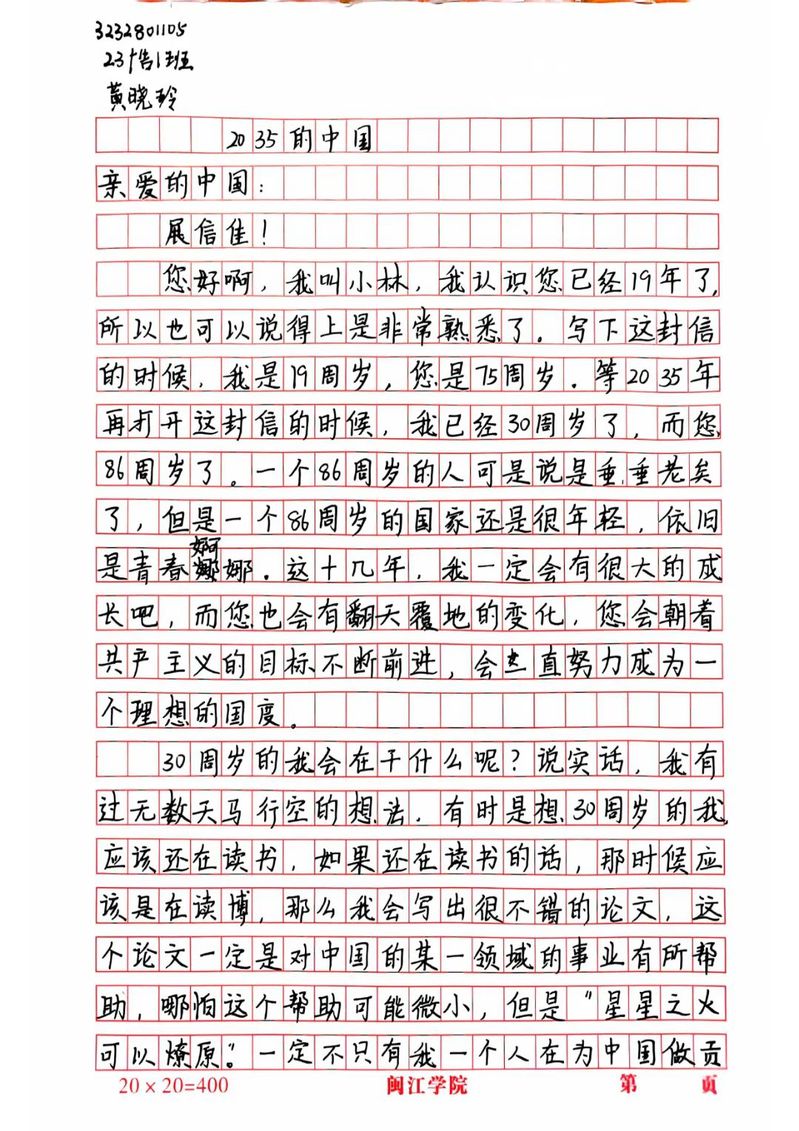 3232801105
23广告1班
黄晓玲
2035的中国
亲爱的中国：
展信佳！
您好啊，我叫小林，我认识您已经19年了，
所以也可以说得上是非常熟悉了。写下这封信
的时候，我是19周岁，您是75周岁。等2035年
再打开这封信的时候，我已经30周岁了，而您
86周岁了。一个86周岁的人可是说是垂垂老矣
了，但是一个86周岁的国家还是很年轻，依旧
是青春婀娜。这十几年，我一定会有很大的成
长吧，而您也会有翻天覆地的变化，您会朝着
共产主义的目标不断前进，会一直努力成为一
个理想的国度。
30周岁的我会在干什么呢？说实话，我有
过无数天马行空的想法。有时是想30周岁的我
应该还在读书，如果还在读书的话，那时候应
该是在读博，那么我会写出很不错的论文，这
个论文一定是对中国的某一领域的事业有所帮
助，哪怕这个帮助可能微小，但是“星星之火
可以燎原”。一定不只有我一个人在为中国做贡
20×20=400 闽江学院 第 页